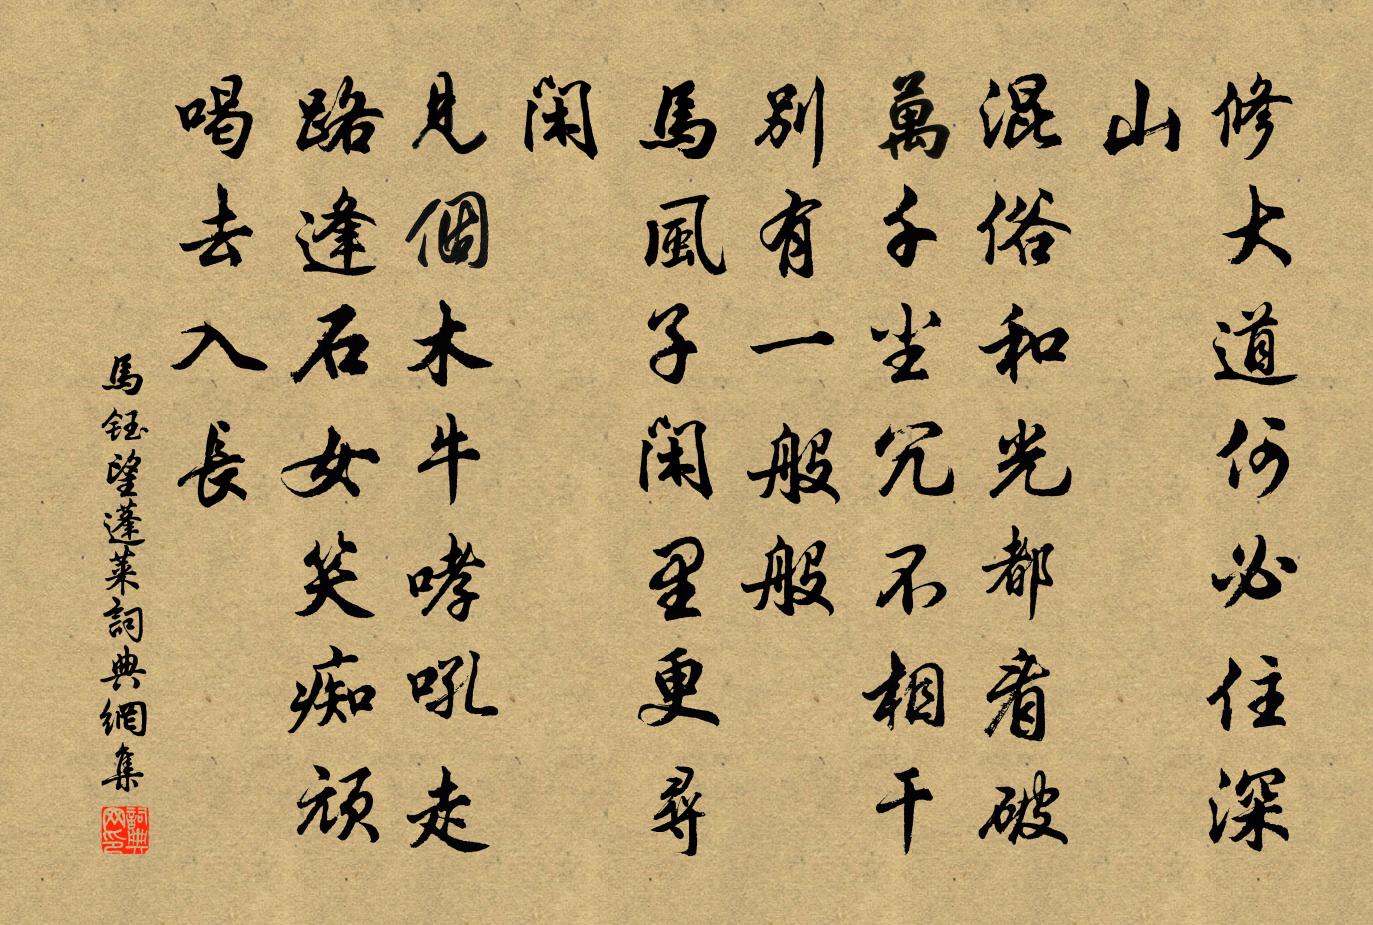 修大道何必住深
山
混俗和光都看破
萬千尘冗不相干
別有一般般
馬風子閑里更尋
閑
見個木牛哮吼走
路逢石女笑痴頑
喝去入長
馬鈺望蓬萊詞典網集
詞典
网印